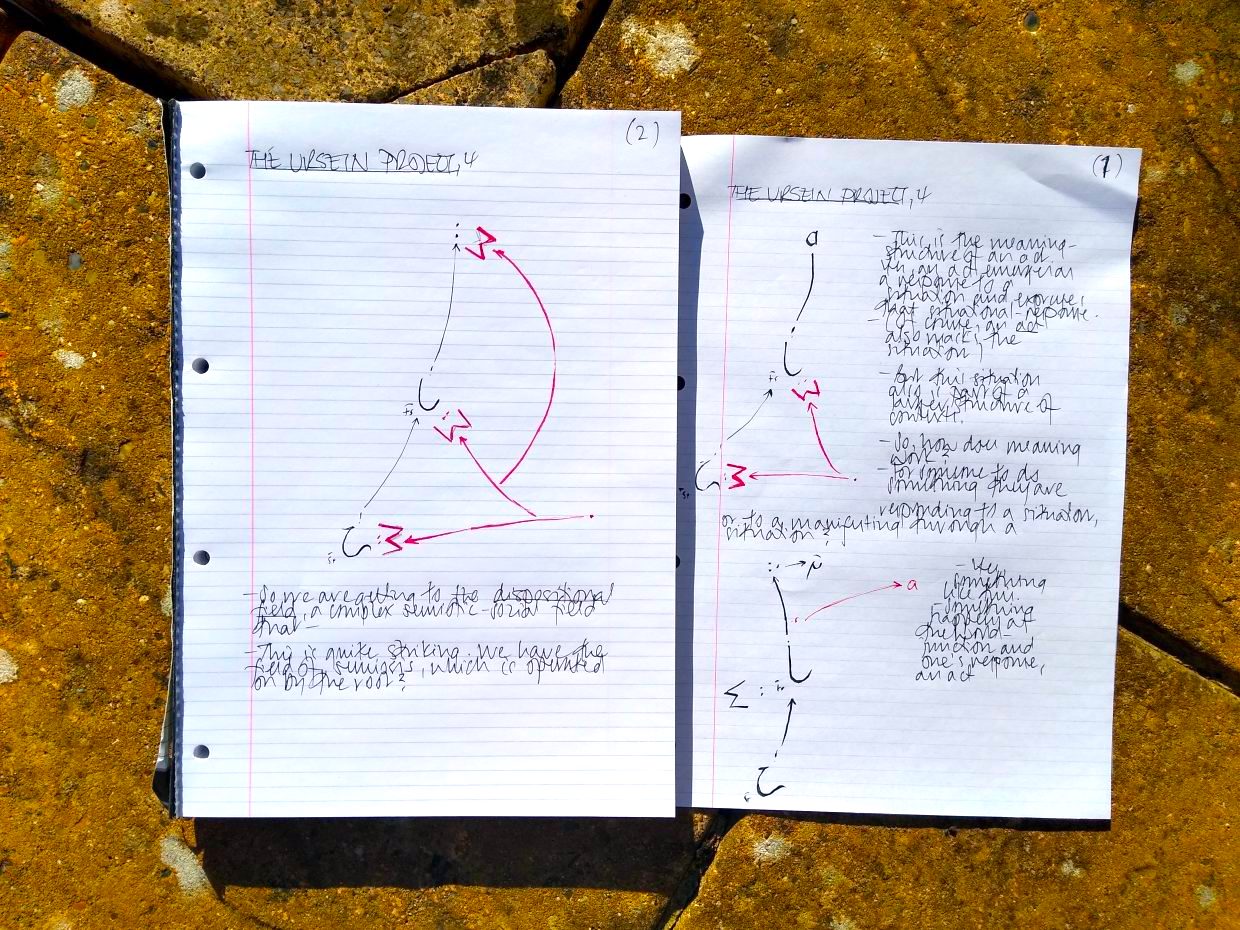 (1)
THE URSEIN PROJECT, 4
a
- This is the meaning-
structure of an act.
an act emerges as
a response to a
situation and
that situational-response.
- Of course, an act
also marks the
situation!
- But this situation
also is part of a
larger structure of
contexts.
- So, how does meaning
work?
- For someone to do
something they are
responding to a situation,
or to a manifesting through a
situation?
a
something
like this.
Something
happens at
the world-
junction and
one's response,
an act
(2)
THE URSEIN PROJECT, 4
Σ
Σ
Σ
- So we are getting to the dispositional
field, a complex semiotic-social field
that -
- This is quite striking. We have the
field of , which is operated
on by the root?